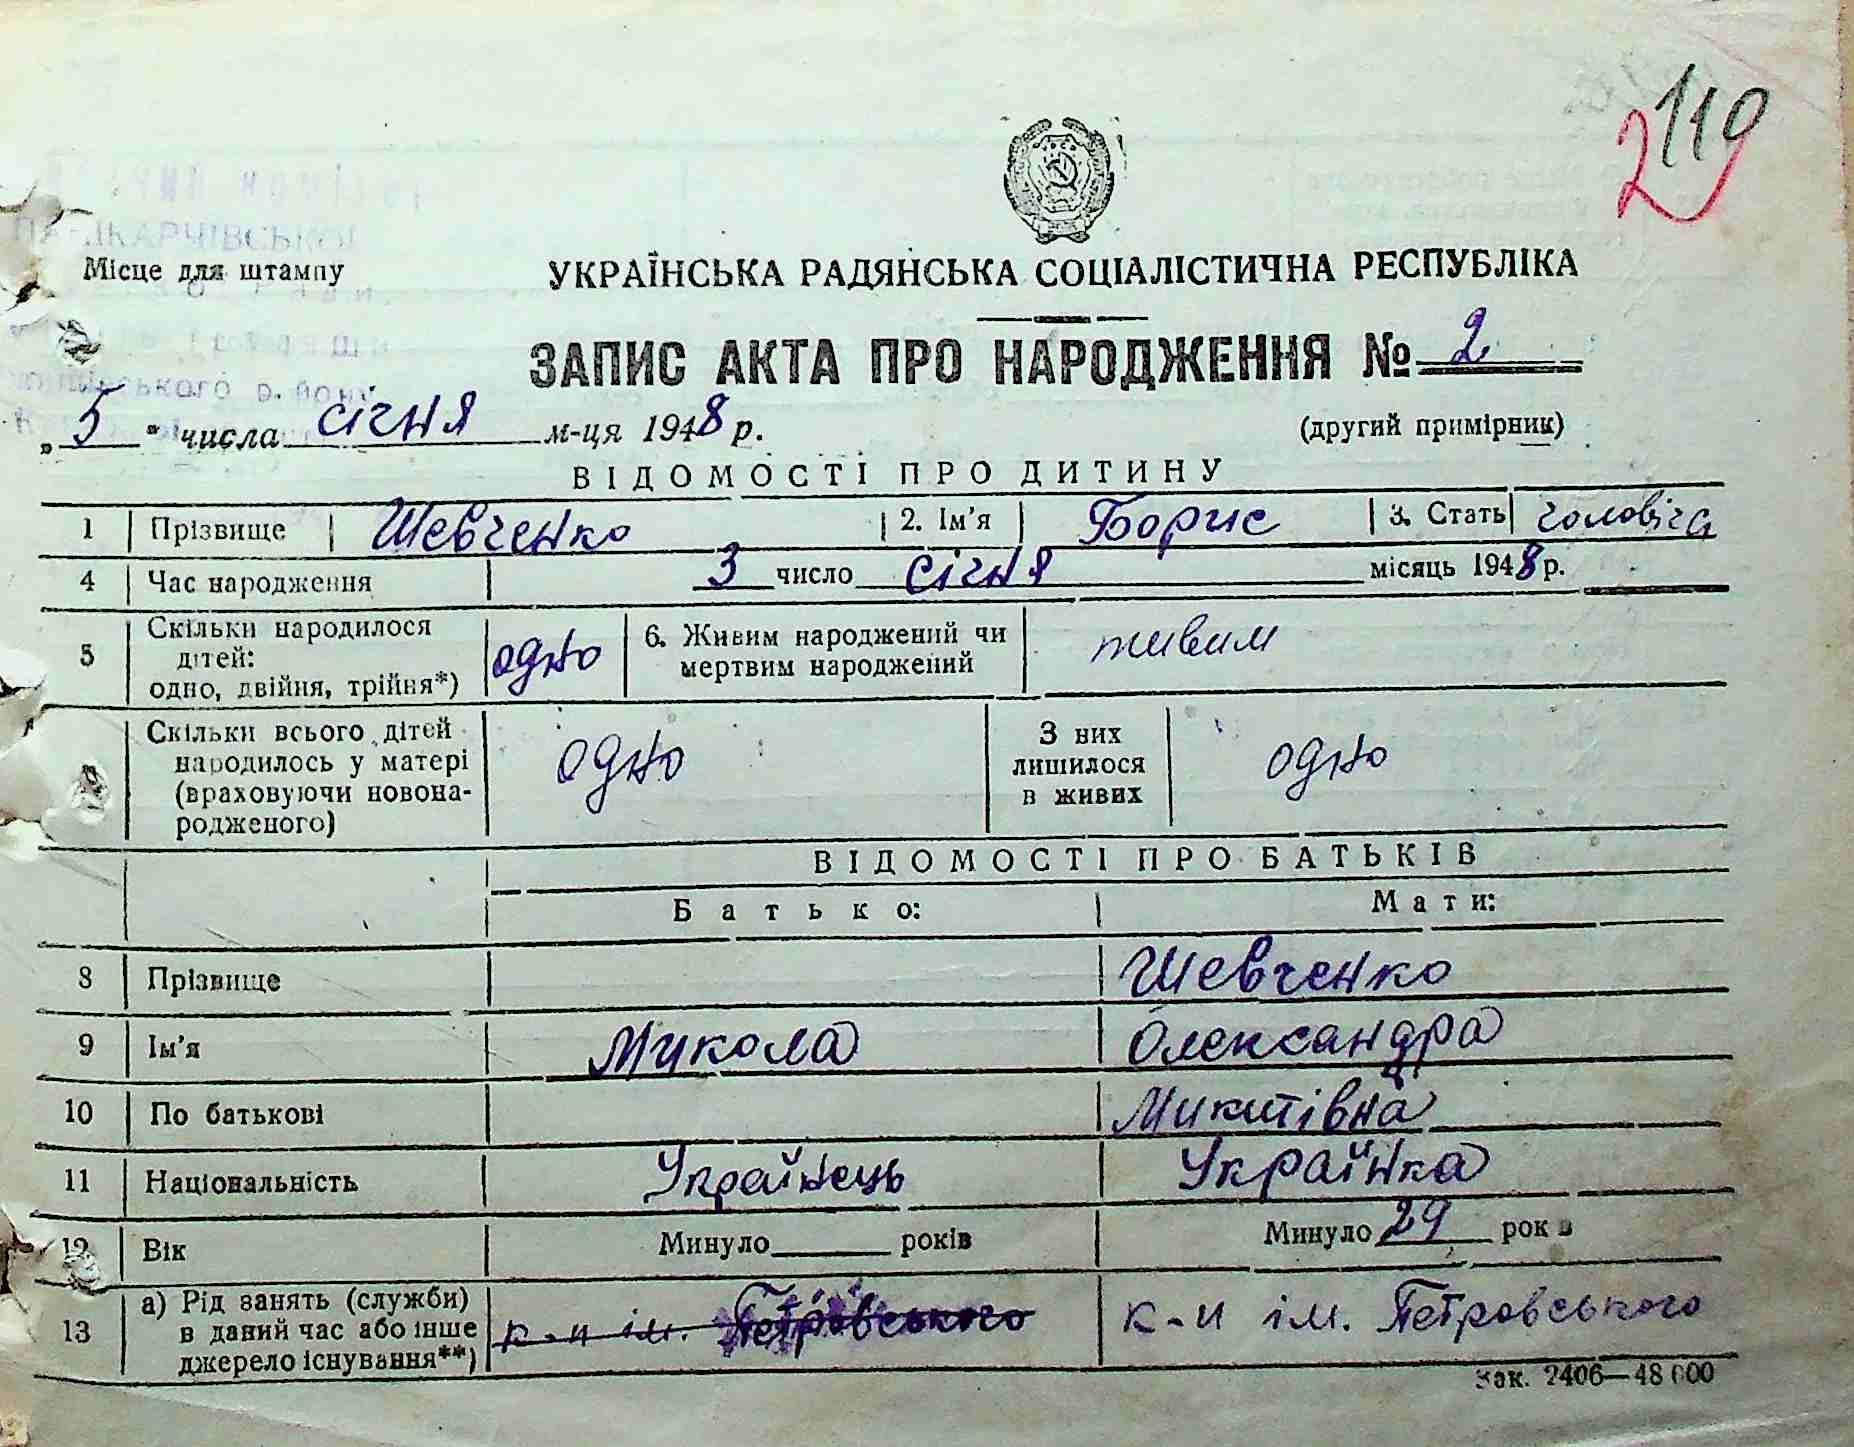 119
2
Місце для штампу
УКРАЇНСЬКА РАДЯНСЬКА СОЦІАЛІСТИЧНА РЕСПУБЛІКА
ЗАПИС АКТА ПРО НАРОДЖЕННЯ № 2
„5“ числа січня м-ця 1948 р.
(другий примірник)
ВІДОМОСТІ ПРО ДИТИНУ
1 Прізвище Шевченко 2. Ім'я Борис 3. Стать чоловіча
4 Час народження 3 число січня місяць 1948 р.
5 Скільки народилося дітей: одно, двійня, трійня*) одно 6. Живим народжений чи мертвим народжений живим
Скільки всього дітей народилось у матері (враховуючи новонародженого) одно З них лишилося в живих одно
ВІДОМОСТІ ПРО БАТЬКІВ
Батько: Мати:
8 Прізвище Шевченко
9 Ім'я Микола Олександра
10 По батькові Микитівна
11 Національність Українець Українка
12 Вік Минуло років Минуло 29 років
13 а) Рід занять (служби) в даний час або інше джерело існування**) к-п ім. Петровського к-п ім. Петровського
Зак. 2406—48 000